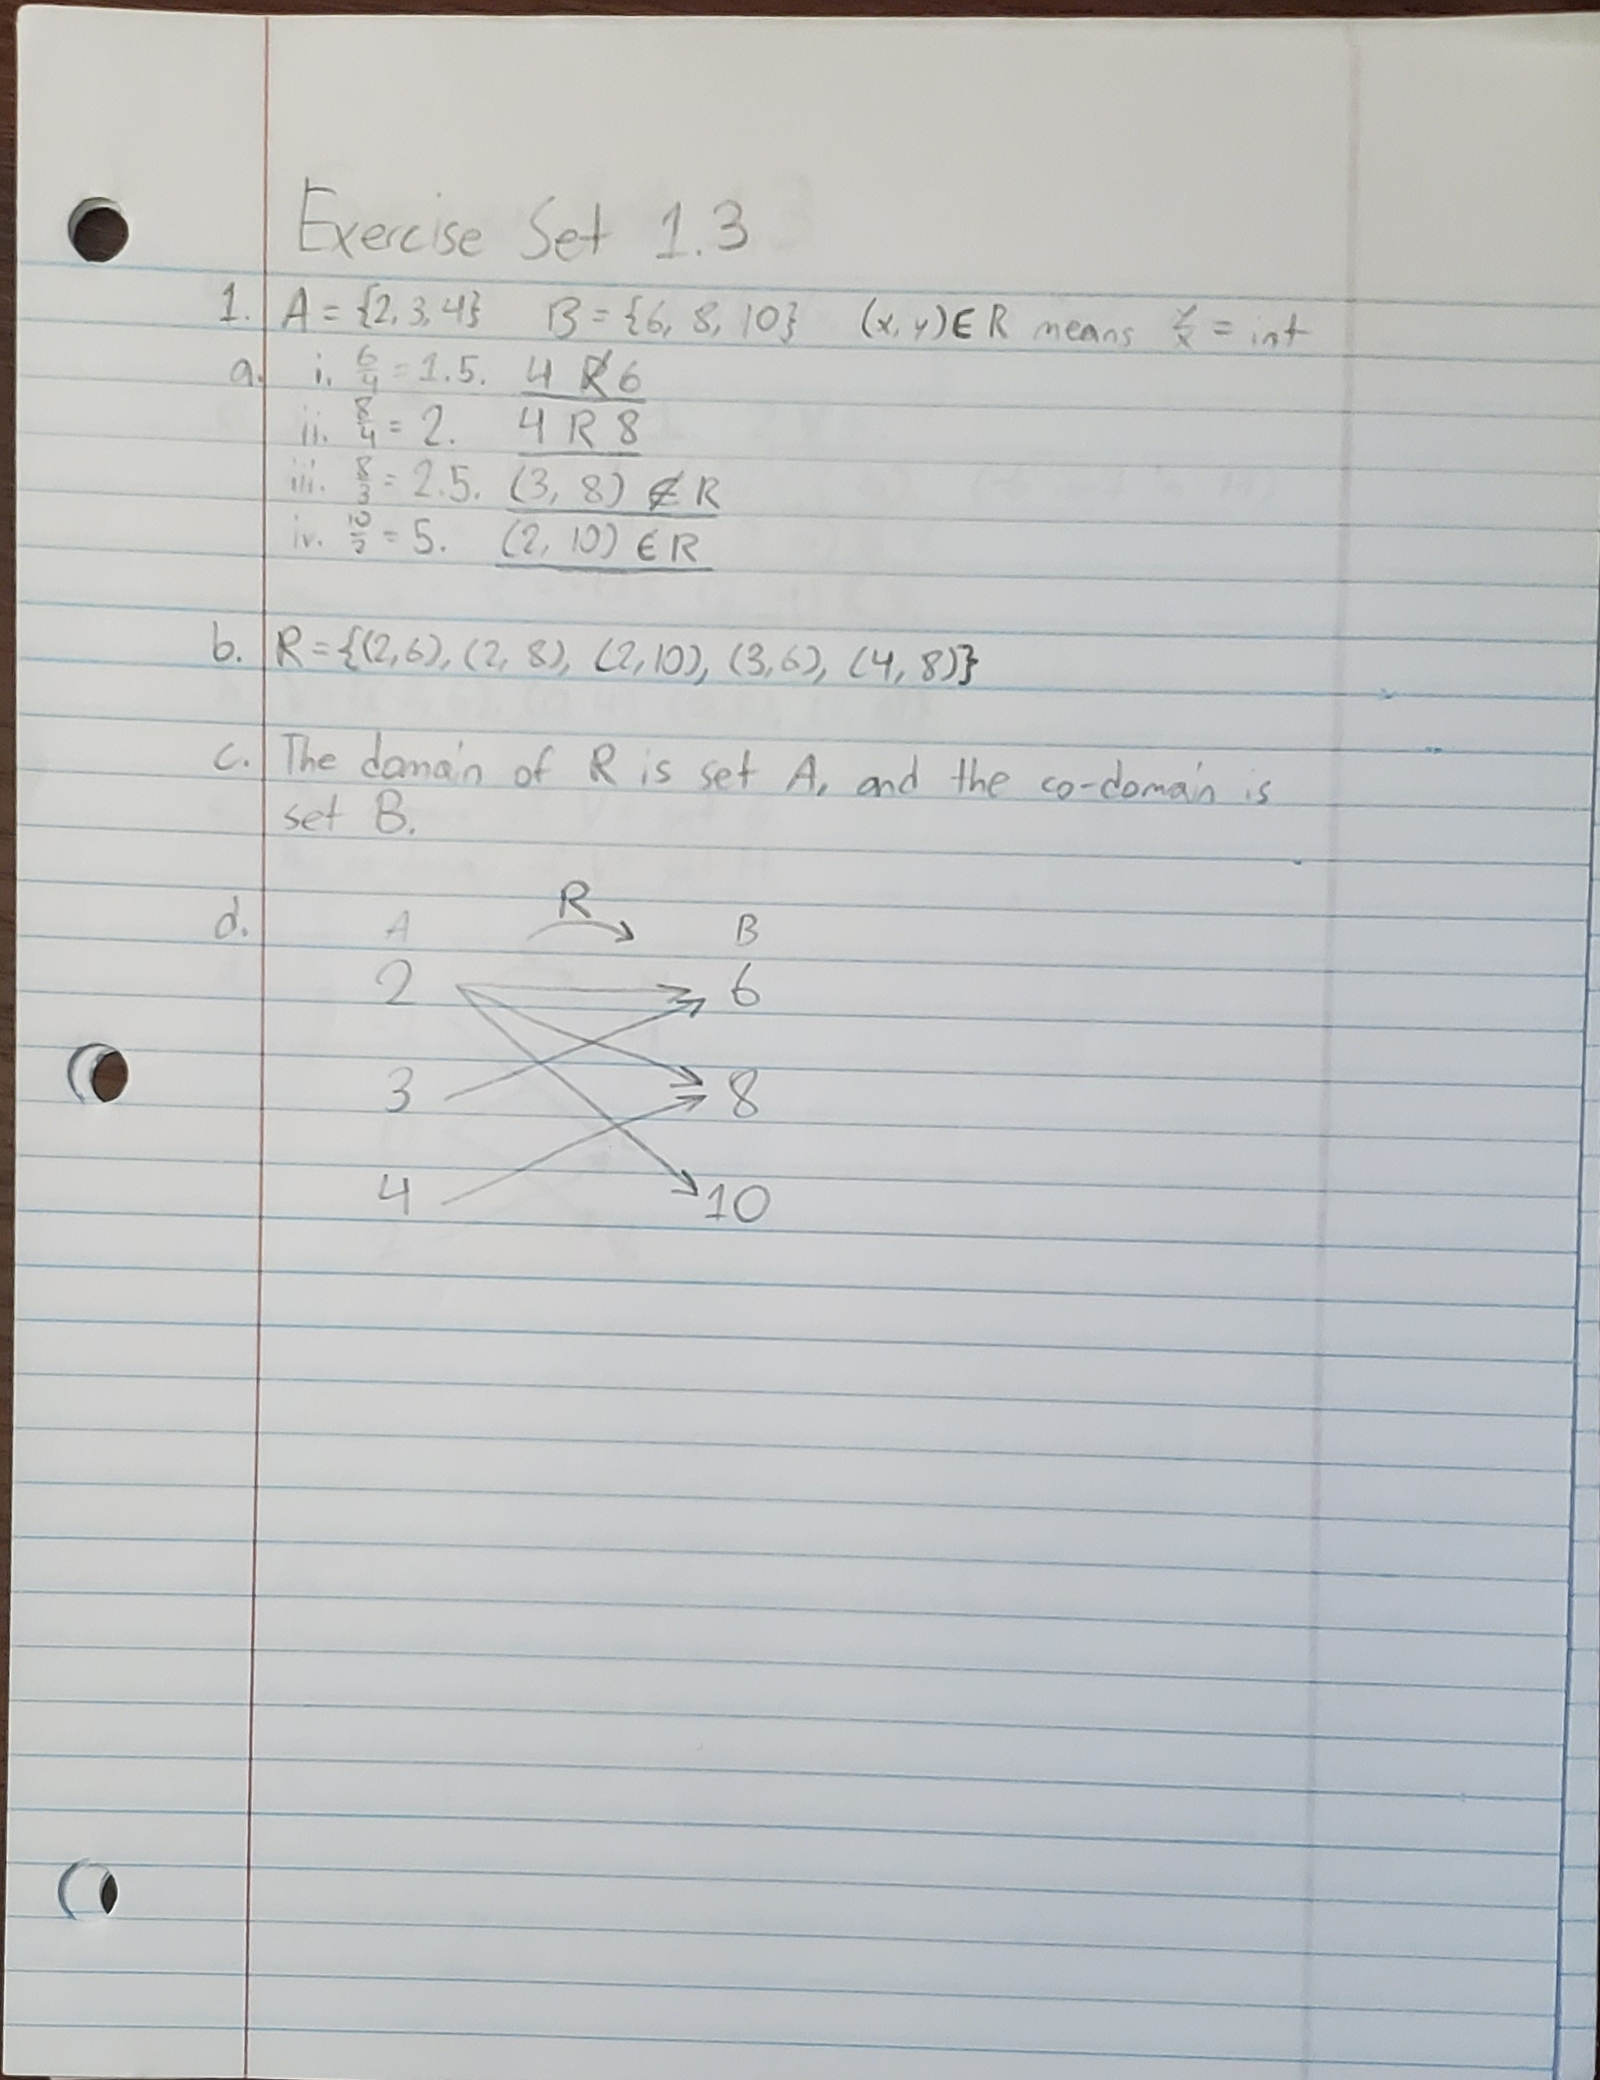 Exercise Set 1.3
1. A = {2, 3, 4} B = {6, 8, 10} (x, y) ∈ R means y/x = int
a. i. 6/4 = 1.5. 4 R̸ 6
ii. 8/4 = 2. 4 R 8
iii. 8/3 = 2.5. (3, 8) ∉ R
iv. 10/2 = 5. (2, 10) ∈ R
b. R = {(2,6), (2, 8), (2,10), (3,6), (4, 8)}
c. The domain of R is set A, and the co-domain is
set B.
R
d. A B
2 6
3 8
4 10